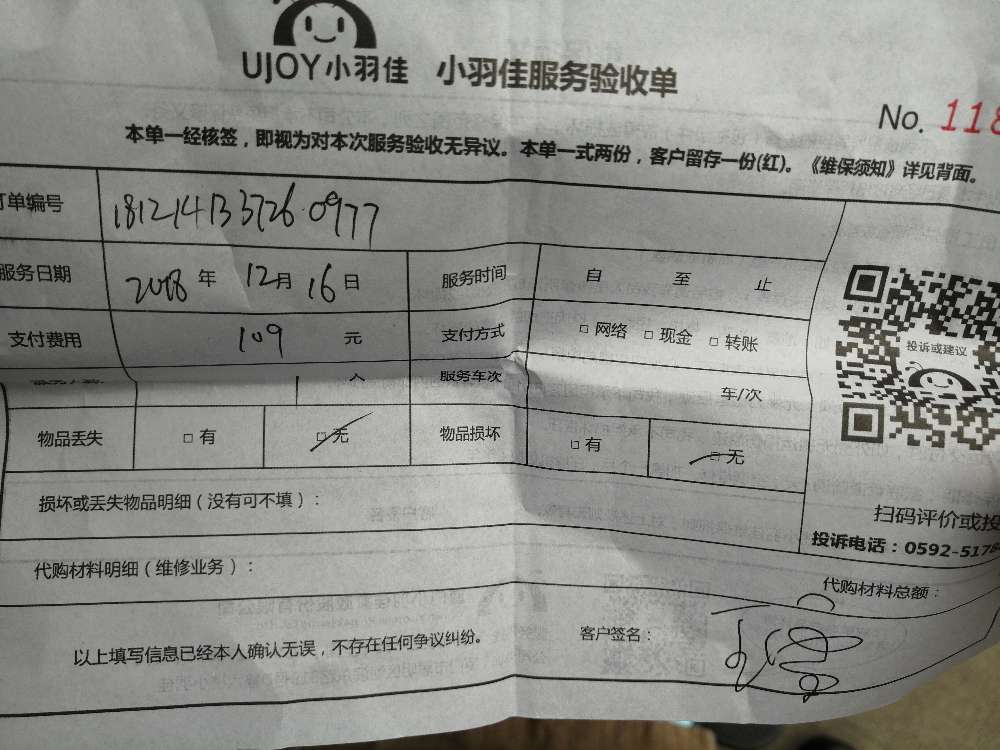 UJOY小羽佳 小羽佳服务验收单
No. 118
本单一经核签，即视为对本次服务验收无异议。本单一式两份，客户留存一份(红)。《维保须知》详见背面。
订单编号 181214133726 0977
服务日期 2018年 12月 16日 服务时间 自 至 止
支付费用 109 元 支付方式 □ 网络 □ 现金 □ 转账
投诉或建议
1 人 服务车次 车/次
物品丢失 □ 有 □ 无 物品损坏 □ 有 □ 无
损坏或丢失物品明细（没有可不填）：
扫码评价或投
投诉电话：0592-5178
代购材料明细（维修业务）： 代购材料总额：
以上填写信息已经本人确认无误，不存在任何争议纠纷。 客户签名：